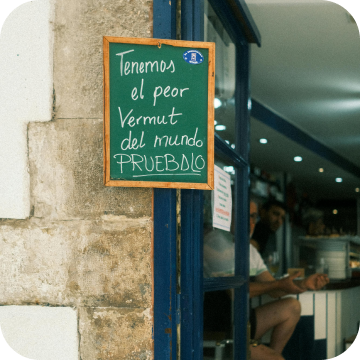 Tenemos
el peor
Vermut
del mundo
PRUEBALO